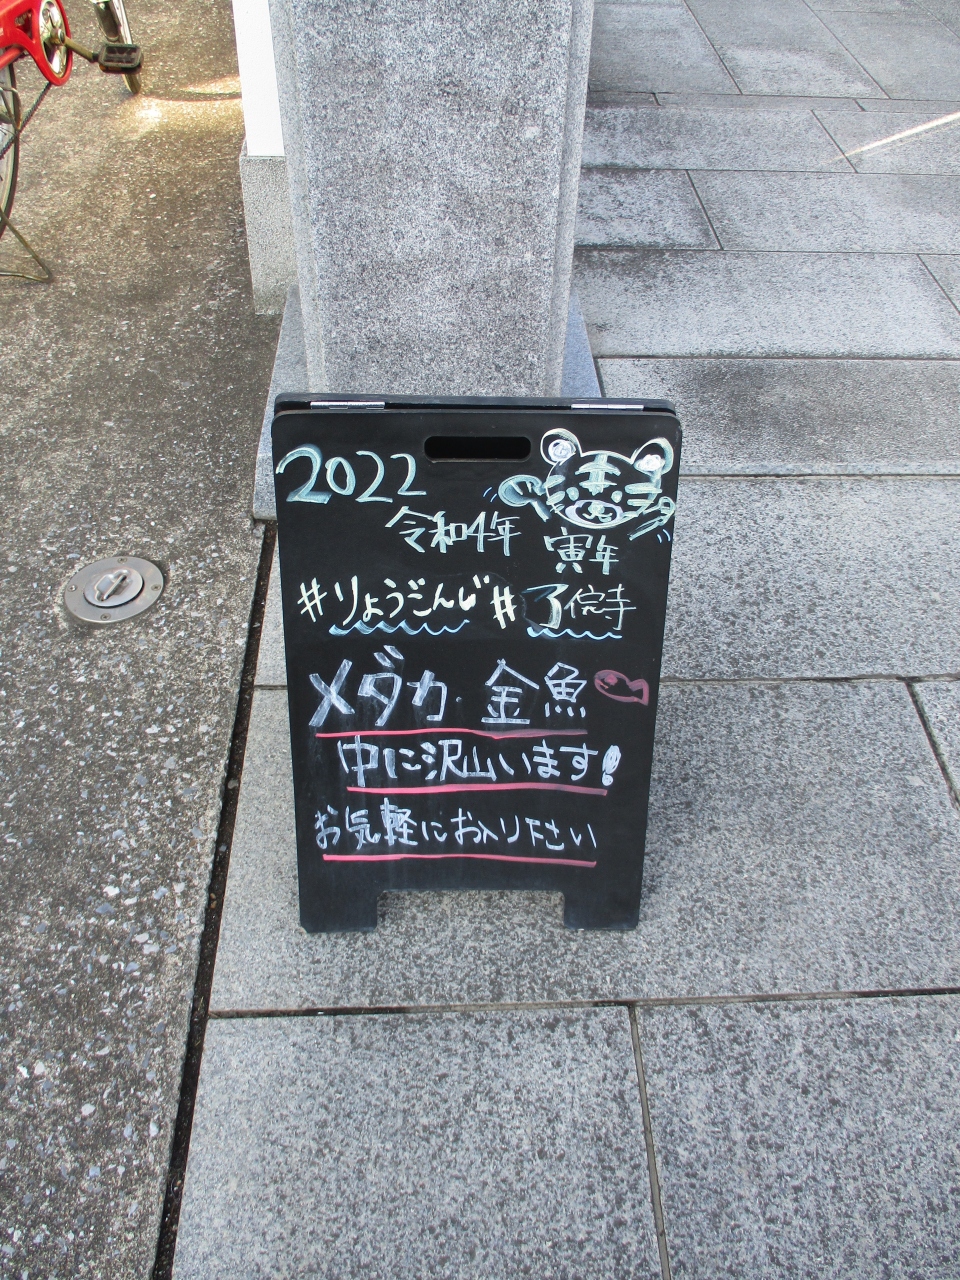 2022
令和4年 寅年
#りょうごんじ #了侊寺
メダカ 金魚
中に沢山います!
お気軽にお入り下さい